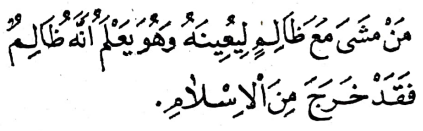 مَنْ مَشَىٰ مَعَ ظَالِمٍ لِيُعِينَهُ وَهُوَ يَعْلَمُ أَنَّهُ ظَالِمٌ
فَقَدْ خَرَجَ مِنَ الْاِسْلَامِ.